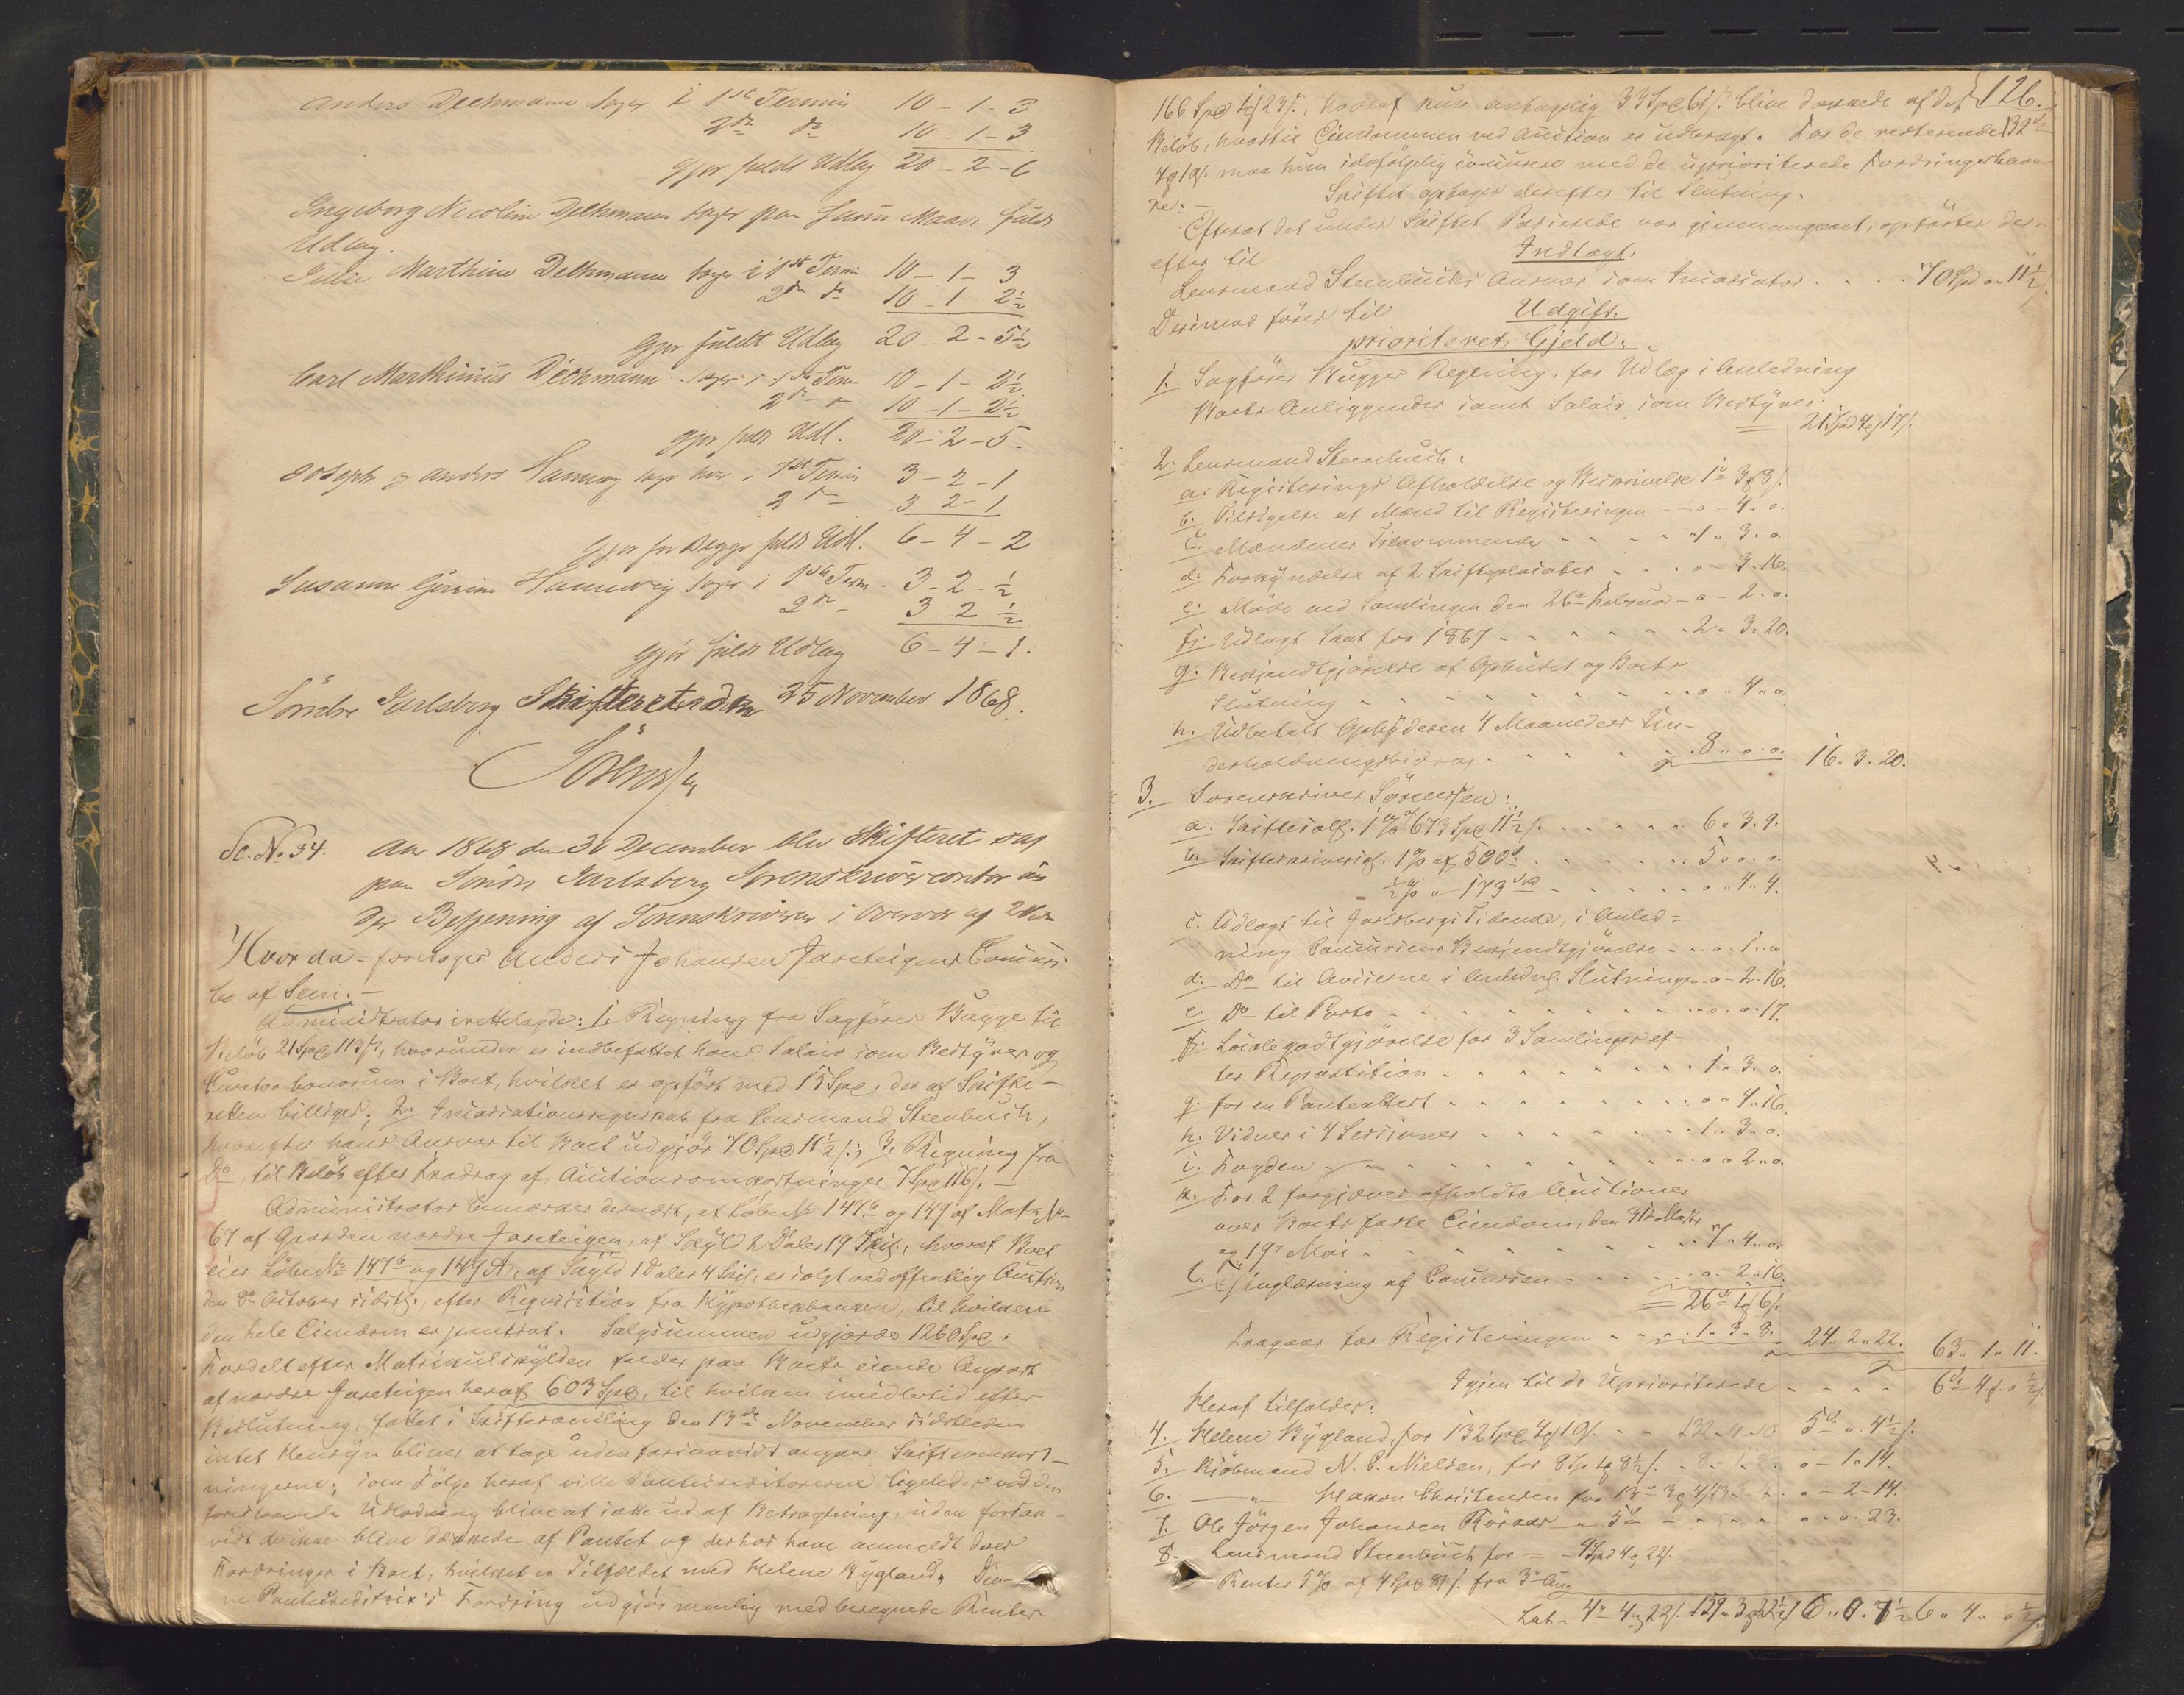 Anders Deckmann tager i 1ste Termin 10 - 1 - 3
2den do 10 - 1 - 3
Gjør fuldt Udlæg 20 - 2 - 6
Ingeborg Nicoline Deckmann tager paa samme Maade fuldt
Udlæg.
Julie Marthine Deckmann tager i 1ste Termin 10 - 1 - 3
2den do 10 - 1 2½
Gjør fuldt Udlæg 20 - 2 - 5½
Carl Marthinius Deckmann tager i 1ste Term 10 - 1 - 2½
2den - 10 - 1 - 2½
Gjør fuldt Udl. 20 - 2 - 5.
Joseph og Anders Hannevig tager hver i 1ste Termin 3 - 2 - 1
2den - 3 2 - 1
Gjør for Begge fuldt Udl. 6 - 4 - 2
Susanne Hannevig tager i 1ste Term. 3 - 2 - ½
2den - 3 2 ½
Gjør fuldt Udlæg 6 - 4 - 1.
Søndre Jarlsberg Skifteret den 25 November 1868.
Sørenssen
Sc. No 34. Aar 1868 den 30 December blev Skifteret sat
paa Søndre Jarlsberg Sorenskrivercontor
Betjening af Sorenskriveren i Overvær af 2
Hvor da - foretoges Anders Johansen Jareteigens Concurs
bo af Sem. -
Administrator irettelagde: 1. Regning fra Sagfører Bugge til
Beløb 21 Spd 113 s, hvorunder er indbefattet hans Salair som Bestyrer og
Curator bonorum i Boet, hvilket er opført med 15 Spd, der af Skifte-
retten billiges; 2. Incassationsregnskab fra Lensmand Steenbuch,
hvorefter hans Ansvar til Boet udgjør 70 Spd 11½ s; 3. Regning fra
Do, til Beløb efter Fradrag af Auctionsomkostninger 7 Spd 116 s. -
Administrator bemærker dernæst, at Løbe No 147b og 149 af Matr. No
67 af Gaarden nordre Jareteigen, af Skyld 2 Daler 19 Skil., hvoraf Boet
eier Løbe No 147b og 149 A, af Skyld 1 Daler 4 Skil, er solgt ved offentlig Auction
den 8de October sidstl., efter Requisition fra Hypothekbanken, til hvilken
den hele Eiendom er pantsat. Salgssummen udgjorde 1260 Spd.
Fordelt efter Matriculskylden falder paa Boets eiende Anpart
af nordre Jareteigen heraf 603 Spd, til hvilken imidlertid efter
Beslutning, fattet i Skiftesamling den 13de November sidstleden
intet Hensyn bliver at tage uden forsaavidt angaar Skifteomkost-
ningerne; som Følge heraf ville Pantecreditorerne ligeledes ved den
forestaaende Udlodning blive at sætte ud af Betragtning, uden forsaa-
vidt de ikke blive dækkede af Pantet og derhos have anmeldt deres
Fordringer i Boet, hvilket er Tilfældet med Helene Bygland. Den-
ne Pantecreditrix's Fordring udgjør nemlig med beregnede Renter
126.
166 Spd 4 23 s., hvoraf kun antagelig 33 Spd 61 s. blive dækkede af det
Beløb, hvortil Eiendommen ved Auction er udbragt. For de resterende 132 Spd
4 19 s. maa hun ifølgelig concurrere med de uprioriterede Fordringshave-
re. - Skiftet optages derefter til Slutning.
Efterat det under Skiftet Passerede var gjennemgaaet, opførtes der-
efter til Indtægt.
Lensmand Steenbuchs Ansvar som Incassator . . . . 70 Spd o 11½ s.
Derimod føres til Udgift.
prioriteret Gjeld:
1. Sagfører Bugges Regning, for Udlæg i Anledning
Boets Anliggender samt Salair som Bestyrer 21 Spd 4 17 s.
2. Lensmand Steenbuch:
a. Registerings Afholdelse og Beskrivelse 1 3 8 s.
b. Tilsigelse af Mænd til Registeringen - o - 4. o.
c. Mændenes Tilkommende - - - - 1 " 3. o.
d. Forkyndelse af 2 Skifteplacater - - - o - 3. 16.
e. Møde ved Samlingen den 26de Februar - o - 2. o.
f. Udlagt Skat for 1867 - - - - - 2 " 3. 20.
g. Bekjendtgjørelse af Opbudet og Boets
Slutning - - - - - o " 4 " o.
h. Udbetalt Opbyderen 4 Maaneders Un-
derholdningsbidrag - - - - 8 " o. o. 16. 3. 20.
3. Sorenskriver Sørenssen:
a. Skiftesalg. 1% af 673 Spd 11½ s. . . . . 6 " 3. 9.
b. Skifteskriversal. 1% af 500 . . . . 5 " o. o.
½% " 173 Spd - - - - o " 4 " 4.
c. Udlagt til Jarlsbergs Tidende, i Anled-
ning Concursens Bekjendtgjørelse - - o - 1. " o
d. Do til Aviserne i Anledng. Slutningen - o - 2 - 16.
e. Do til Porto - - - - - o. o. 17.
f. Localegodtgjørelse for 3 Samlinger ef-
ter Repartition - - - - 1 " 3. o.
g. For en Panteattest - - - - o " 4 " 16.
h. Vidner i 4 Sessioner - - - - 1 " 3 " o.
i. Fogden - - - - - o " 2 " o.
k. For 2 forgjæves afholdte Auctioner
over Boets faste Eiendom, den 31te Marts
og 19de Mai - - - - - 7 " 4 " o.
l. Thinglæsning af Concursen - - - o - 2 " 16.
26 1 6 s.
Fragaar for Registeringen - - 1 " 3 " 8. 24 " 2 " 22. 63 " 1 " 11.
Igjen til de Uprioriterede - - - - 6 4 o ½
Heraf tilfalder:
4. Helene Bygland, for 132 Spd 4 19 s. - 132 4 19 5 o. 4½ s.
5. Kjøbmand N. C. Nielsen, for 8 Sp 1 8½ s. - 8 1 o - 1. 14.
6. - " - Haavor Christensen for 13 3 4 s. o - 2 - 14.
7. Ole Jørgen Johansen Rørkær - 5 - - - o " o. 23.
8. Lensmand Steenbuch for - 4 Spd 4 22 s.
Renter 5% af 4 Spd s. fra 3die Aug
Lat. 4 4 22 s. 159 3 22½ 6 " 0. 7½ 6 " 4 " o ½